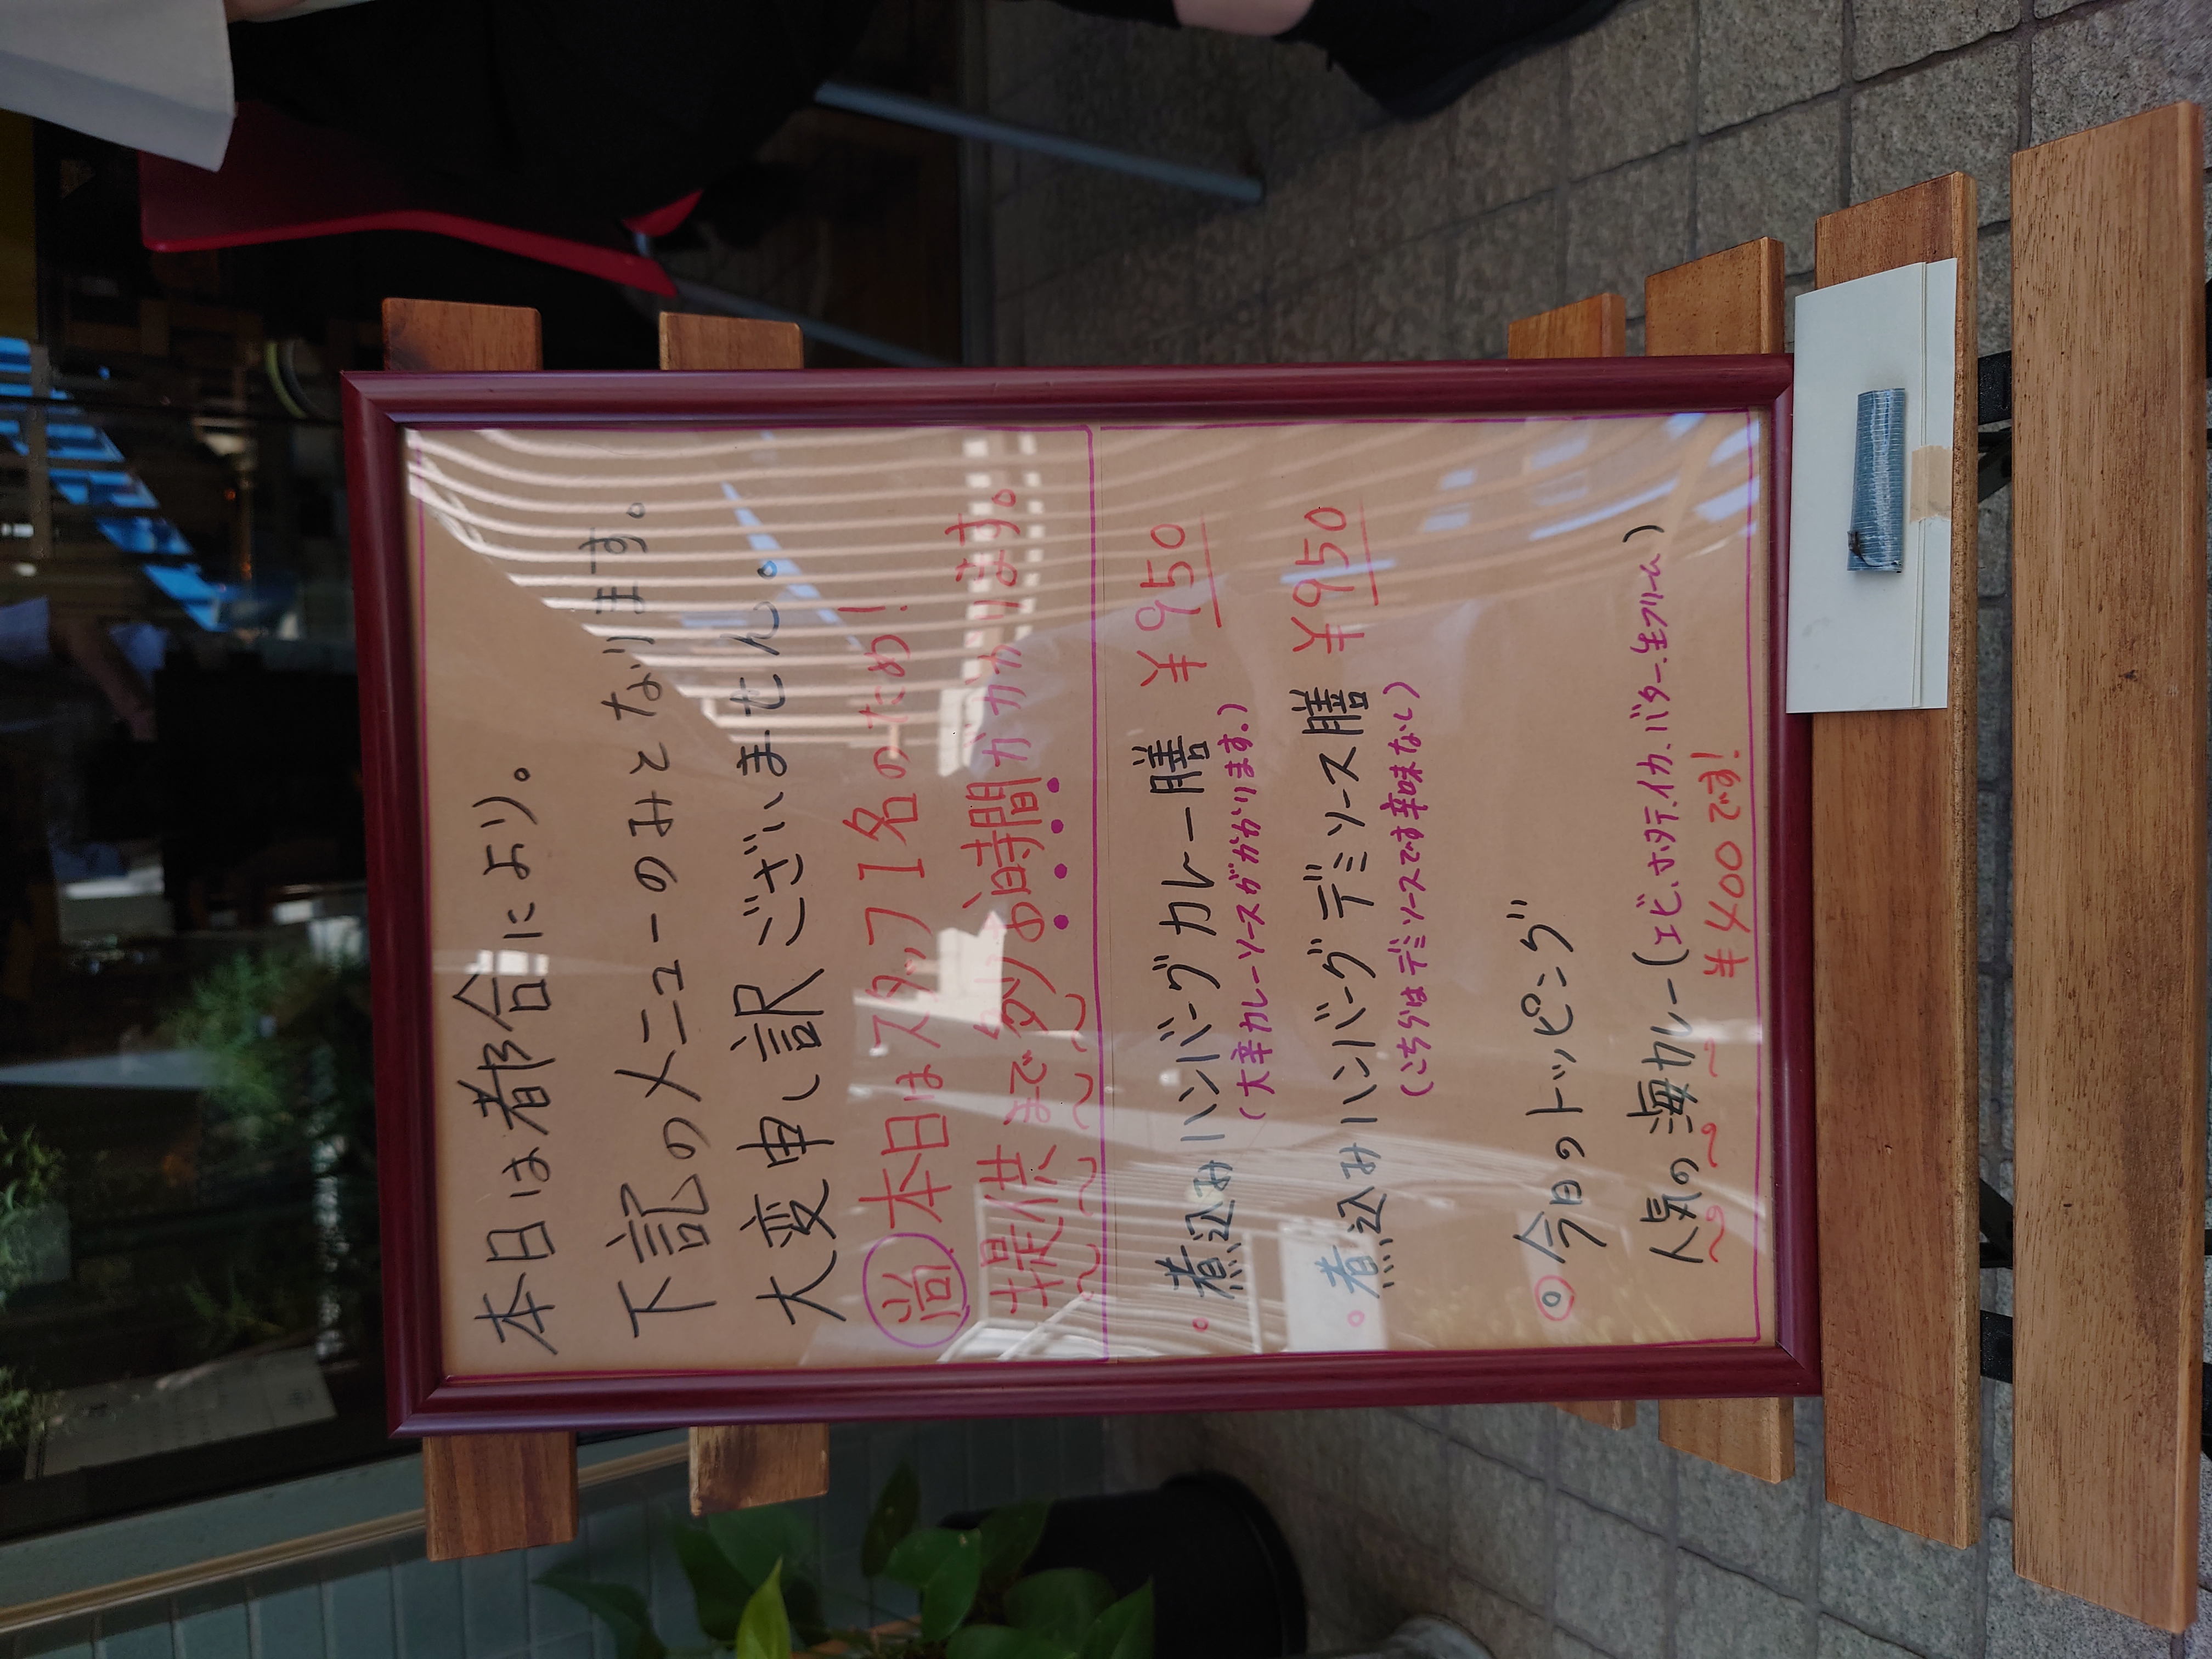 本日は都合により。
下記のメニューのみとなります。
大変申し訳ございません。
尚 本日はスタッフ1名のため!
提供まで少々お時間がかかります。
・煮込みハンバーグカレー膳 ¥950
(大辛カレーソースがかかります。)
・煮込みハンバーグデミソース膳 ¥950
(こちらはデミソースです辛味なし)
◎今日のトッピング
人気の海カレー(エビ、ホタテ、イカ、バター、生クリーム)
¥400です!